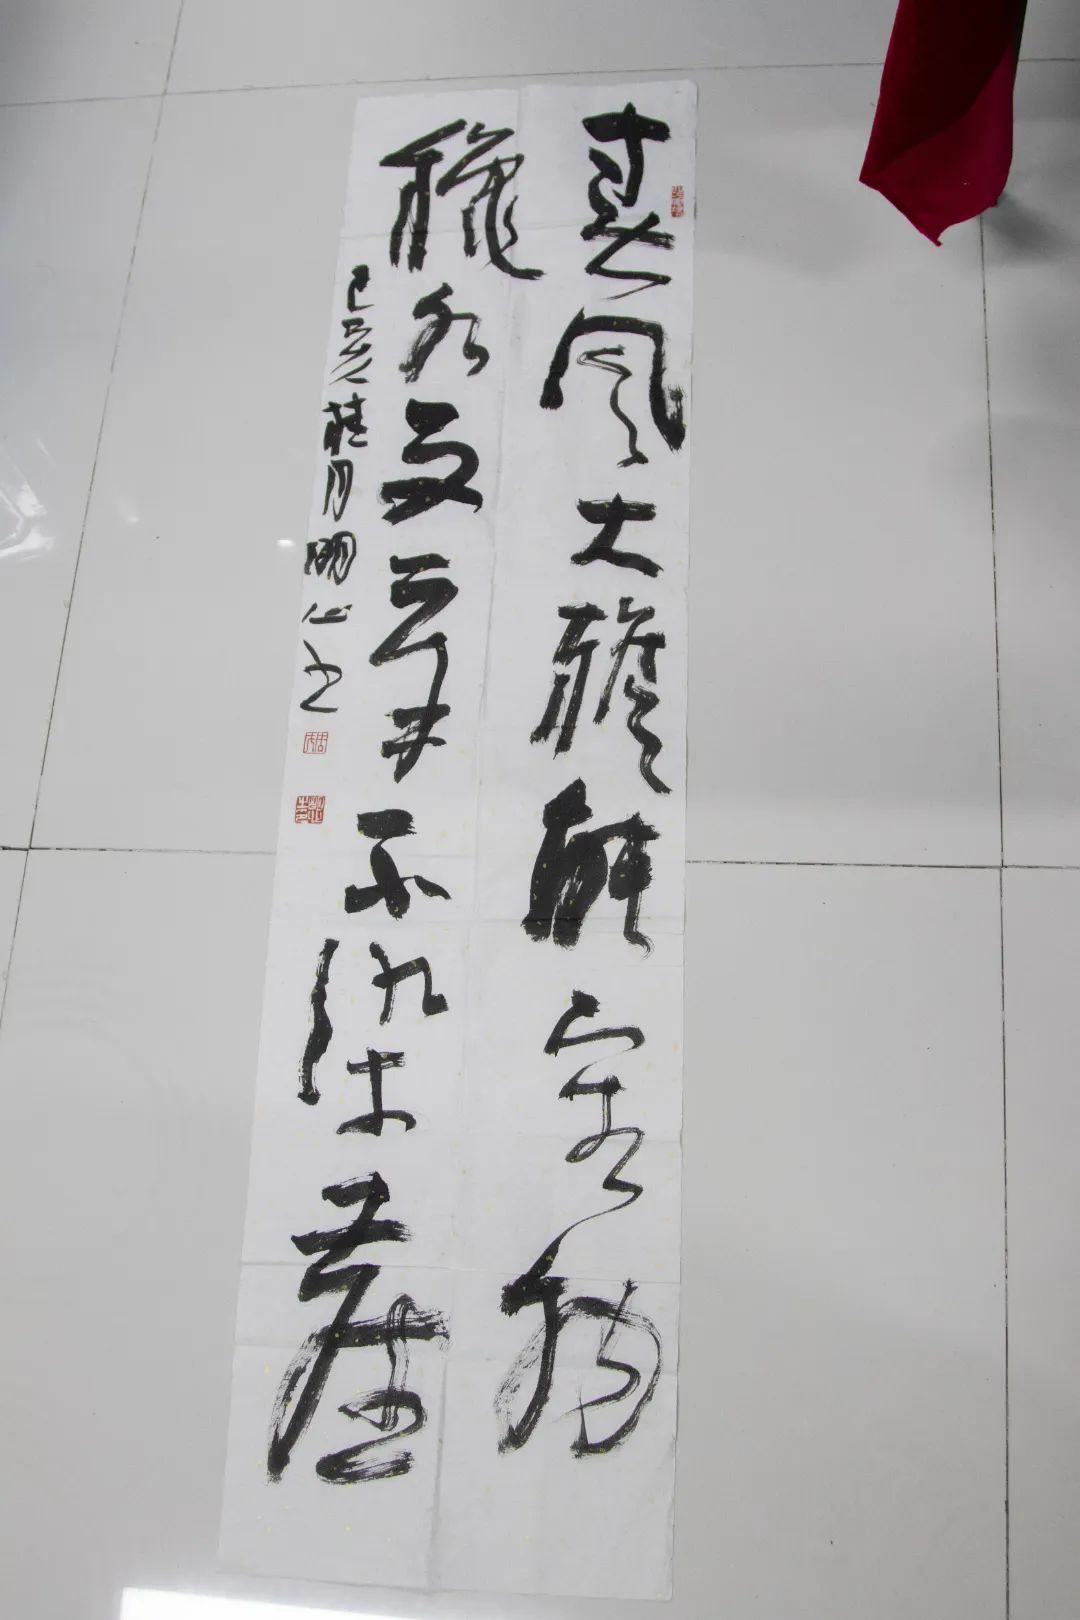 春风大雅能容物
秋水文章不染尘
己亥桂月明山书